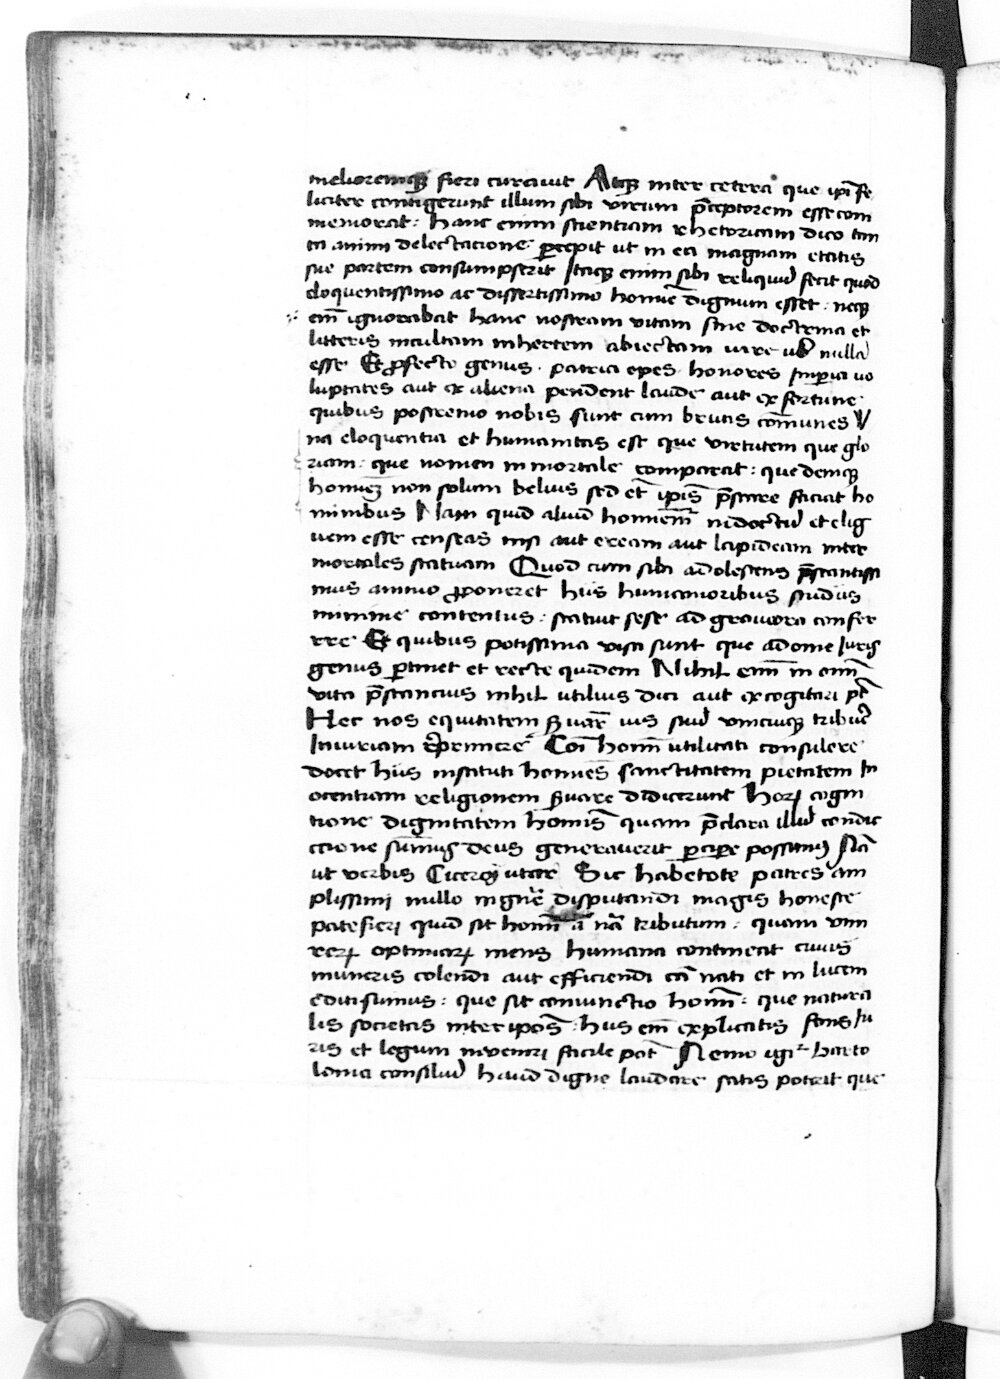 melioremque fieri curavit Atque inter cetera que ipī fe
liciter contigerunt illum sibi virum p̄ceptorem esse com
memorat : hanc enim scientiam rhetoricam dico tan
ta animi delectacione percepit ut in ea magnam etatis
sue partem consumpserit Itaque enim sibi reliquid fecit quod
eloquentissimo ac dissertissimo homīe dignum esset : neque
em̄ ignorabat hanc nostram vitam sine doctrina et
litteris incultam inhertem abiectam nullā
esse Et profecto genus . patria opes honores Imperia vo
luptates aut ex aliena pendent laude aut ex fortune
quibus postremo nobis sunt cum brutis com̄unes V
na eloquentia et humanitas est que virtutem que glo
riam : que nomen inmortale comparat : que demque
homīez non solum beluis sed et̄ ipīs p̄stare faciat ho
minibus Nam quid aliud hominem̄ indoctū et elig
uem esse censeas nisi aut eream aut lapideam inter
mortales statuam Quod cum sibi adolescens p̄stantissi
mus animo proponeret hiis humanioribus studiis
minime contentus : statuit sese ad graviora confer
rre Et quibus potissima visa sunt que ad ome Iuris
genus pertinet et recte quidem Nihil em̄ in omī
vita p̄stancius nihil utilius dici aut excogitari pt̄
Hec nos equitatem servare ius suū unicuique tribue᷑
Iniuriam Cōi homī utilitati consulere
docet hiis instituti homīes sanctitatem pietatem In
ocentiam religionem servare didicerunt Horꝝ cogni
tione dignitatem homīs quam p̄clara illū condic
ccione sum̄us deus generaverit percipe possimus Nā
ut verbis Ciceronis utar Sic habetote patres am
plissimi nullo in gn̄e disputandi magis honeste
patefieri quid sit homī a nā tributum : quam vim
rerꝝ optimarꝝ mens humana contineat cuius
muneris colendi aut efficiendi cā nati et in lucem
editi sumus : que sit coniunctio homī : que natura
lis societas inter ipsos : hiis em̄ explicatis fons Iu
ris et legum inveniri facile pot̄ Nemo igi᷑ barto
lomei consiliū haud digne laudare satis poterit que